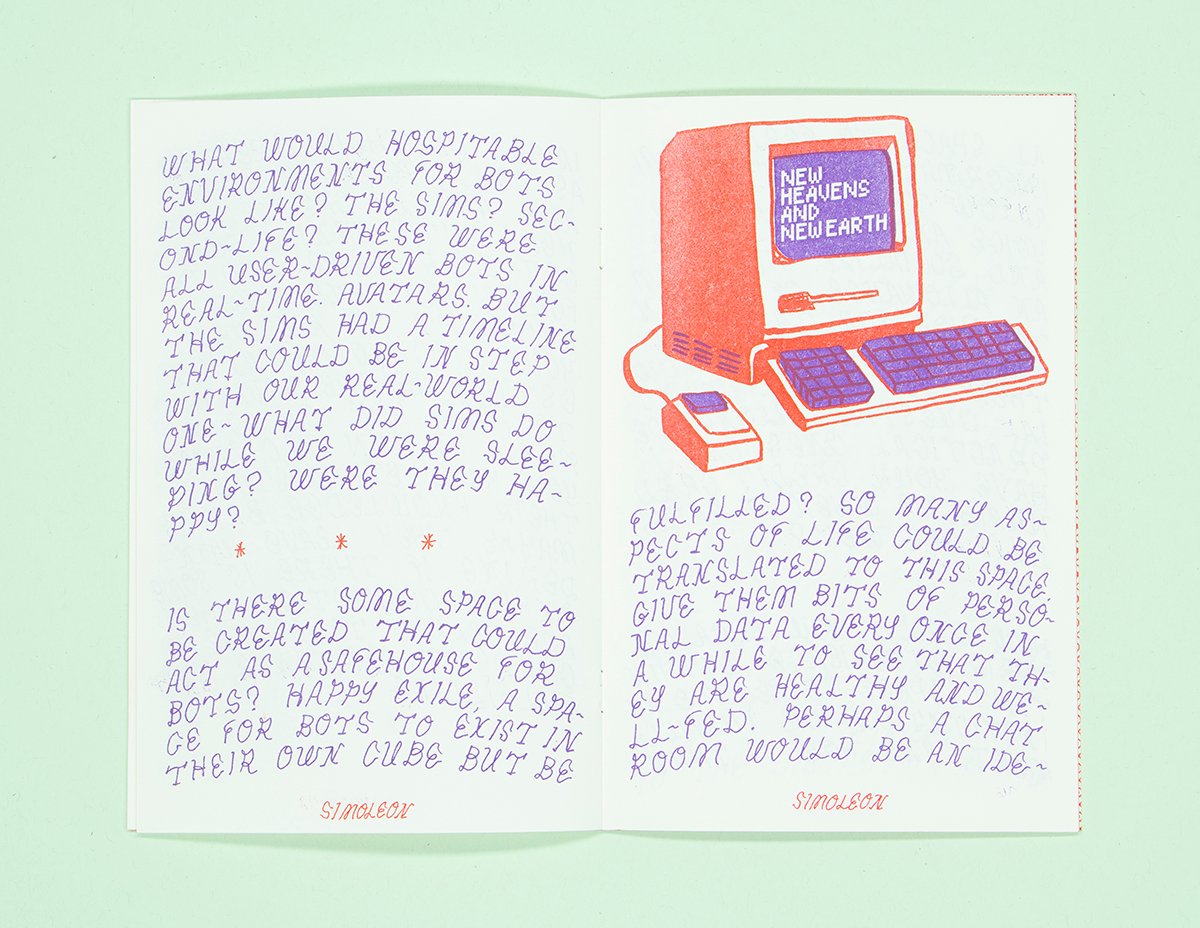 WHAT WOULD HOSPITABLE
ENVIRONMENTS FOR BOTS
LOOK LIKE? THE SIMS? SEC-
OND~LIFE? THESE WERE
ALL USER~DRIVEN BOTS IN
REAL~TIME. AVATARS. BUT
THE SIMS HAD A TIMELINE
THAT COULD BE IN STEP
WITH OUR REAL~WORLD
ONE~WHAT DID SIMS DO
WHILE WE WERE SLEE~
PING? WERE THEY HA~
PPY?
* * *
IS THERE SOME SPACE TO
BE CREATED THAT COULD
ACT AS A SAFEHOUSE FOR
BOTS? HAPPY EXILE, A SPA~
CE FOR BOTS TO EXIST IN
THEIR OWN CUBE BUT BE
SIMOLEON
NEW
HEAVENS
AND
NEW EARTH
FULFILLED? SO MANY AS~
PECTS OF LIFE COULD BE
TRANSLATED TO THIS SPACE.
GIVE THEM BITS OF PERSO~
NAL DATA EVERY ONCE IN
A WHILE TO SEE THAT TH~
EY ARE HEALTHY AND WE~
LL~FED. PERHAPS A CHAT
ROOM WOULD BE AN IDE~
SIMOLEON